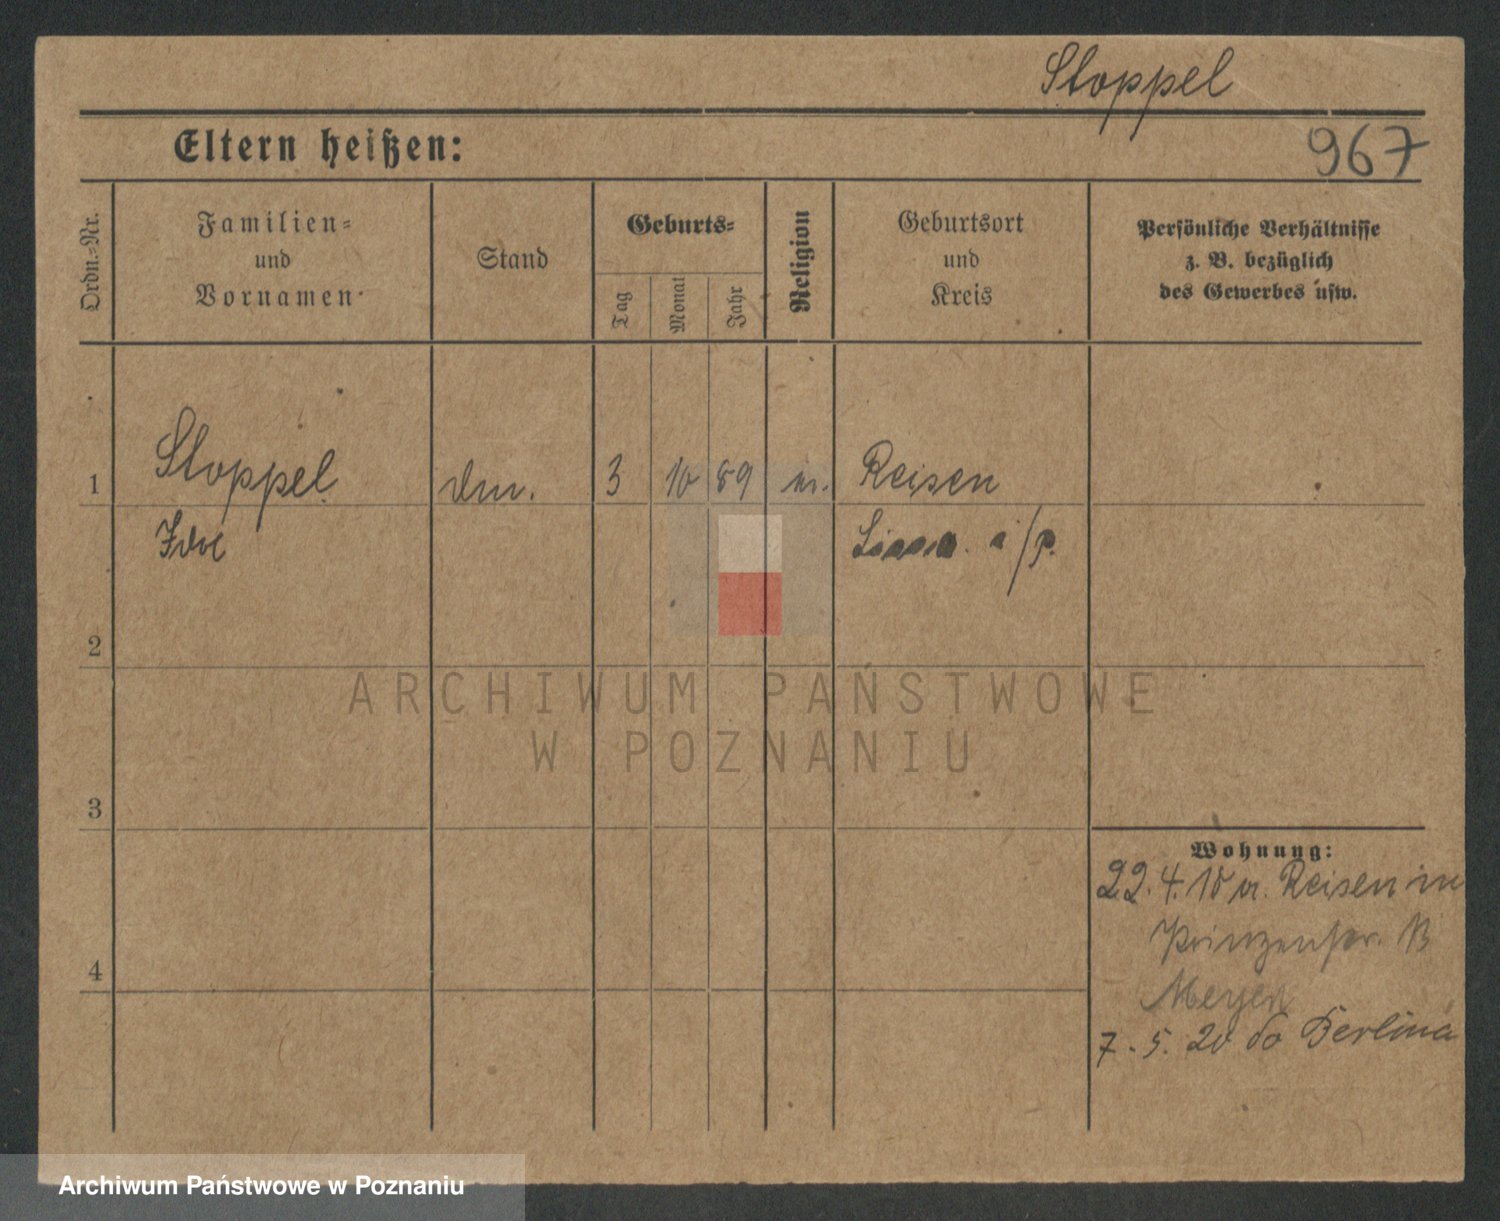 Stoppel
Eltern heißen:
967
Ordn.-Nr.
Familien-
und
Vornamen
Stand
Geburts-
Tag
Monat
Jahr
Religion
Geburtsort
und
Kreis
Persönliche Verhältnisse
z. B. bezüglich
des Gewerbes usw.
1
Stoppel
3
10
89
Reisen
Lissa i/p.
2
3
4
Wohnung:
22. 4. 10 v. Reisen in
Prinzenstr.
Meyer
7. 5. 20 do Berlina
ARCHIWUM PAŃSTWOWE
W POZNANIU
Archiwum Państwowe w Poznaniu